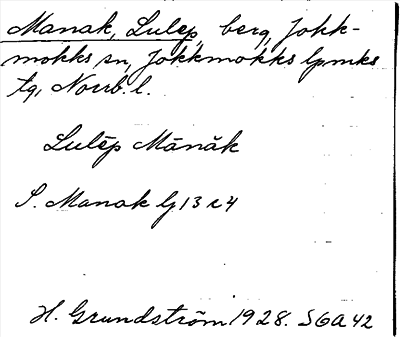 Manak, Lulep, berg, Jokk-
mokks sn, Jokkmokks lpmks
tg, Norrb. l.
Lulēp Mānăk
S. Manak lj 13 c 4
H. Grundström 1928. SGA 42